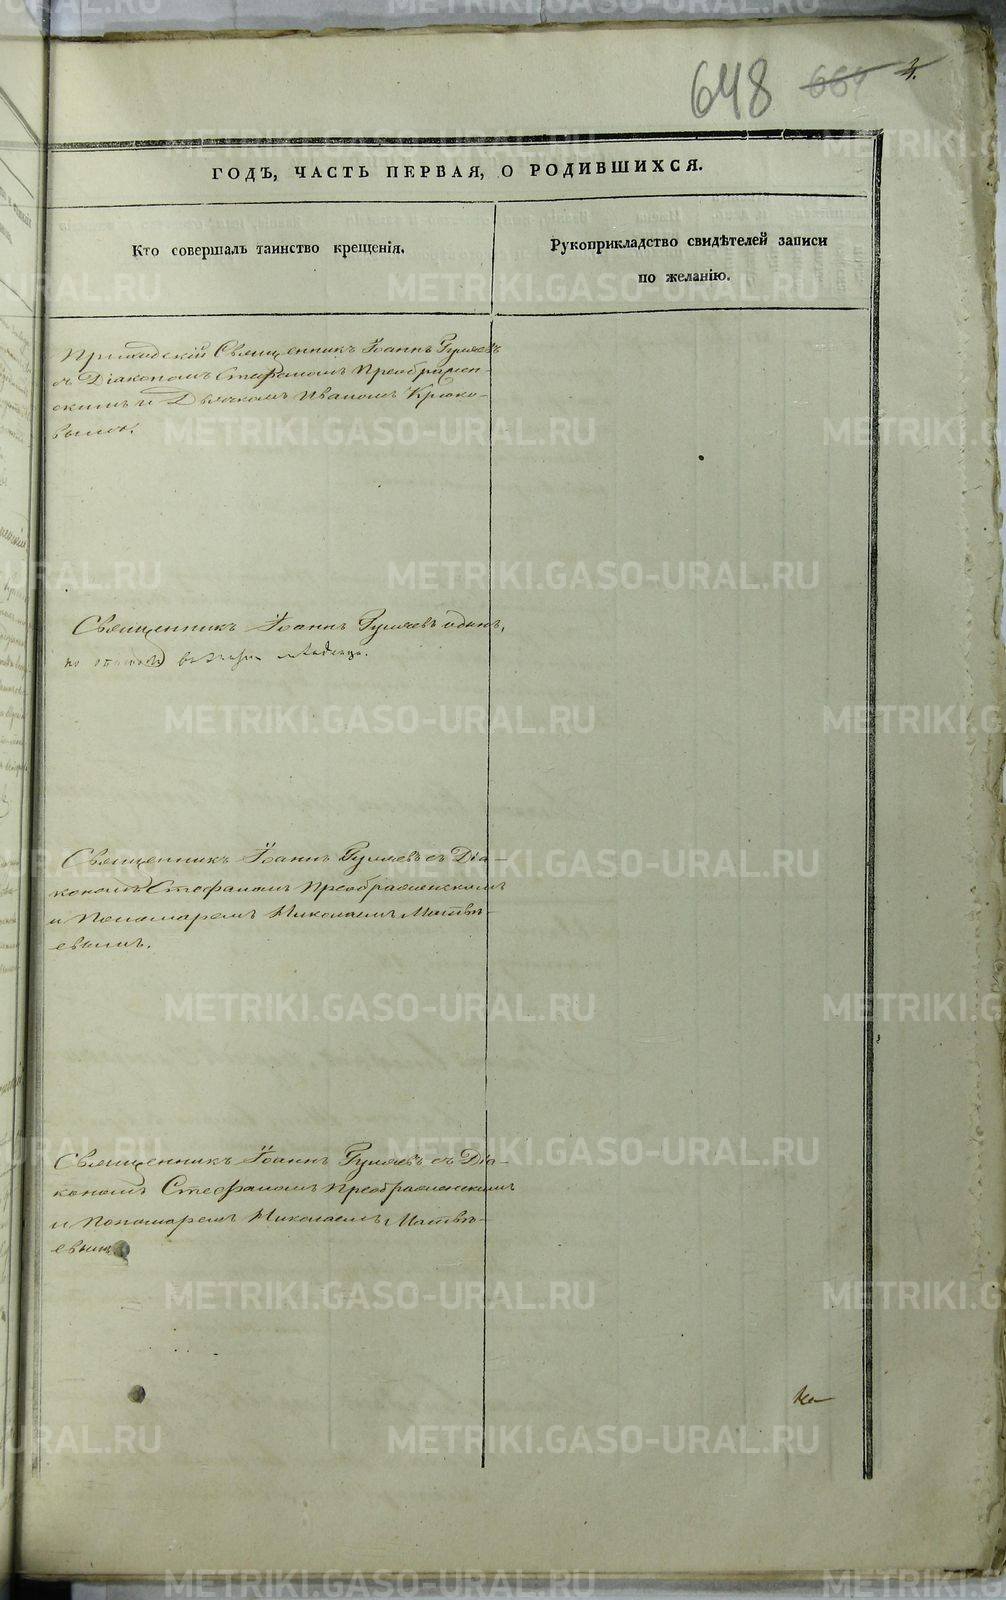 648 664 4.
ГОДЪ, ЧАСТЬ ПЕРВАЯ, О РОДИВШИХСЯ.
Кто совершалъ таинство крещенія.
Рукоприкладство свидѣтелей записи
по желанію.
Приходскій Священникъ Іоаннъ Гуляевъ
съ Діакономъ Стефаномъ Преображен-
скимъ и Дьячкомъ Иваномъ Крюко-
вымъ.
Священникъ Іоаннъ Гуляевъ одинъ,
по младенца.
Священникъ Іоаннъ Гуляевъ съ Діа-
кономъ Стефаномъ Преображенскимъ
и Пономаремъ Николаемъ Матвѣ-
евымъ.
Священникъ Іоаннъ Гуляевъ съ Діа-
кономъ Стефаномъ Преображенскимъ
и Пономаремъ Николаемъ Матвѣ-
евымъ
METRIKI.GASO-URAL.RU